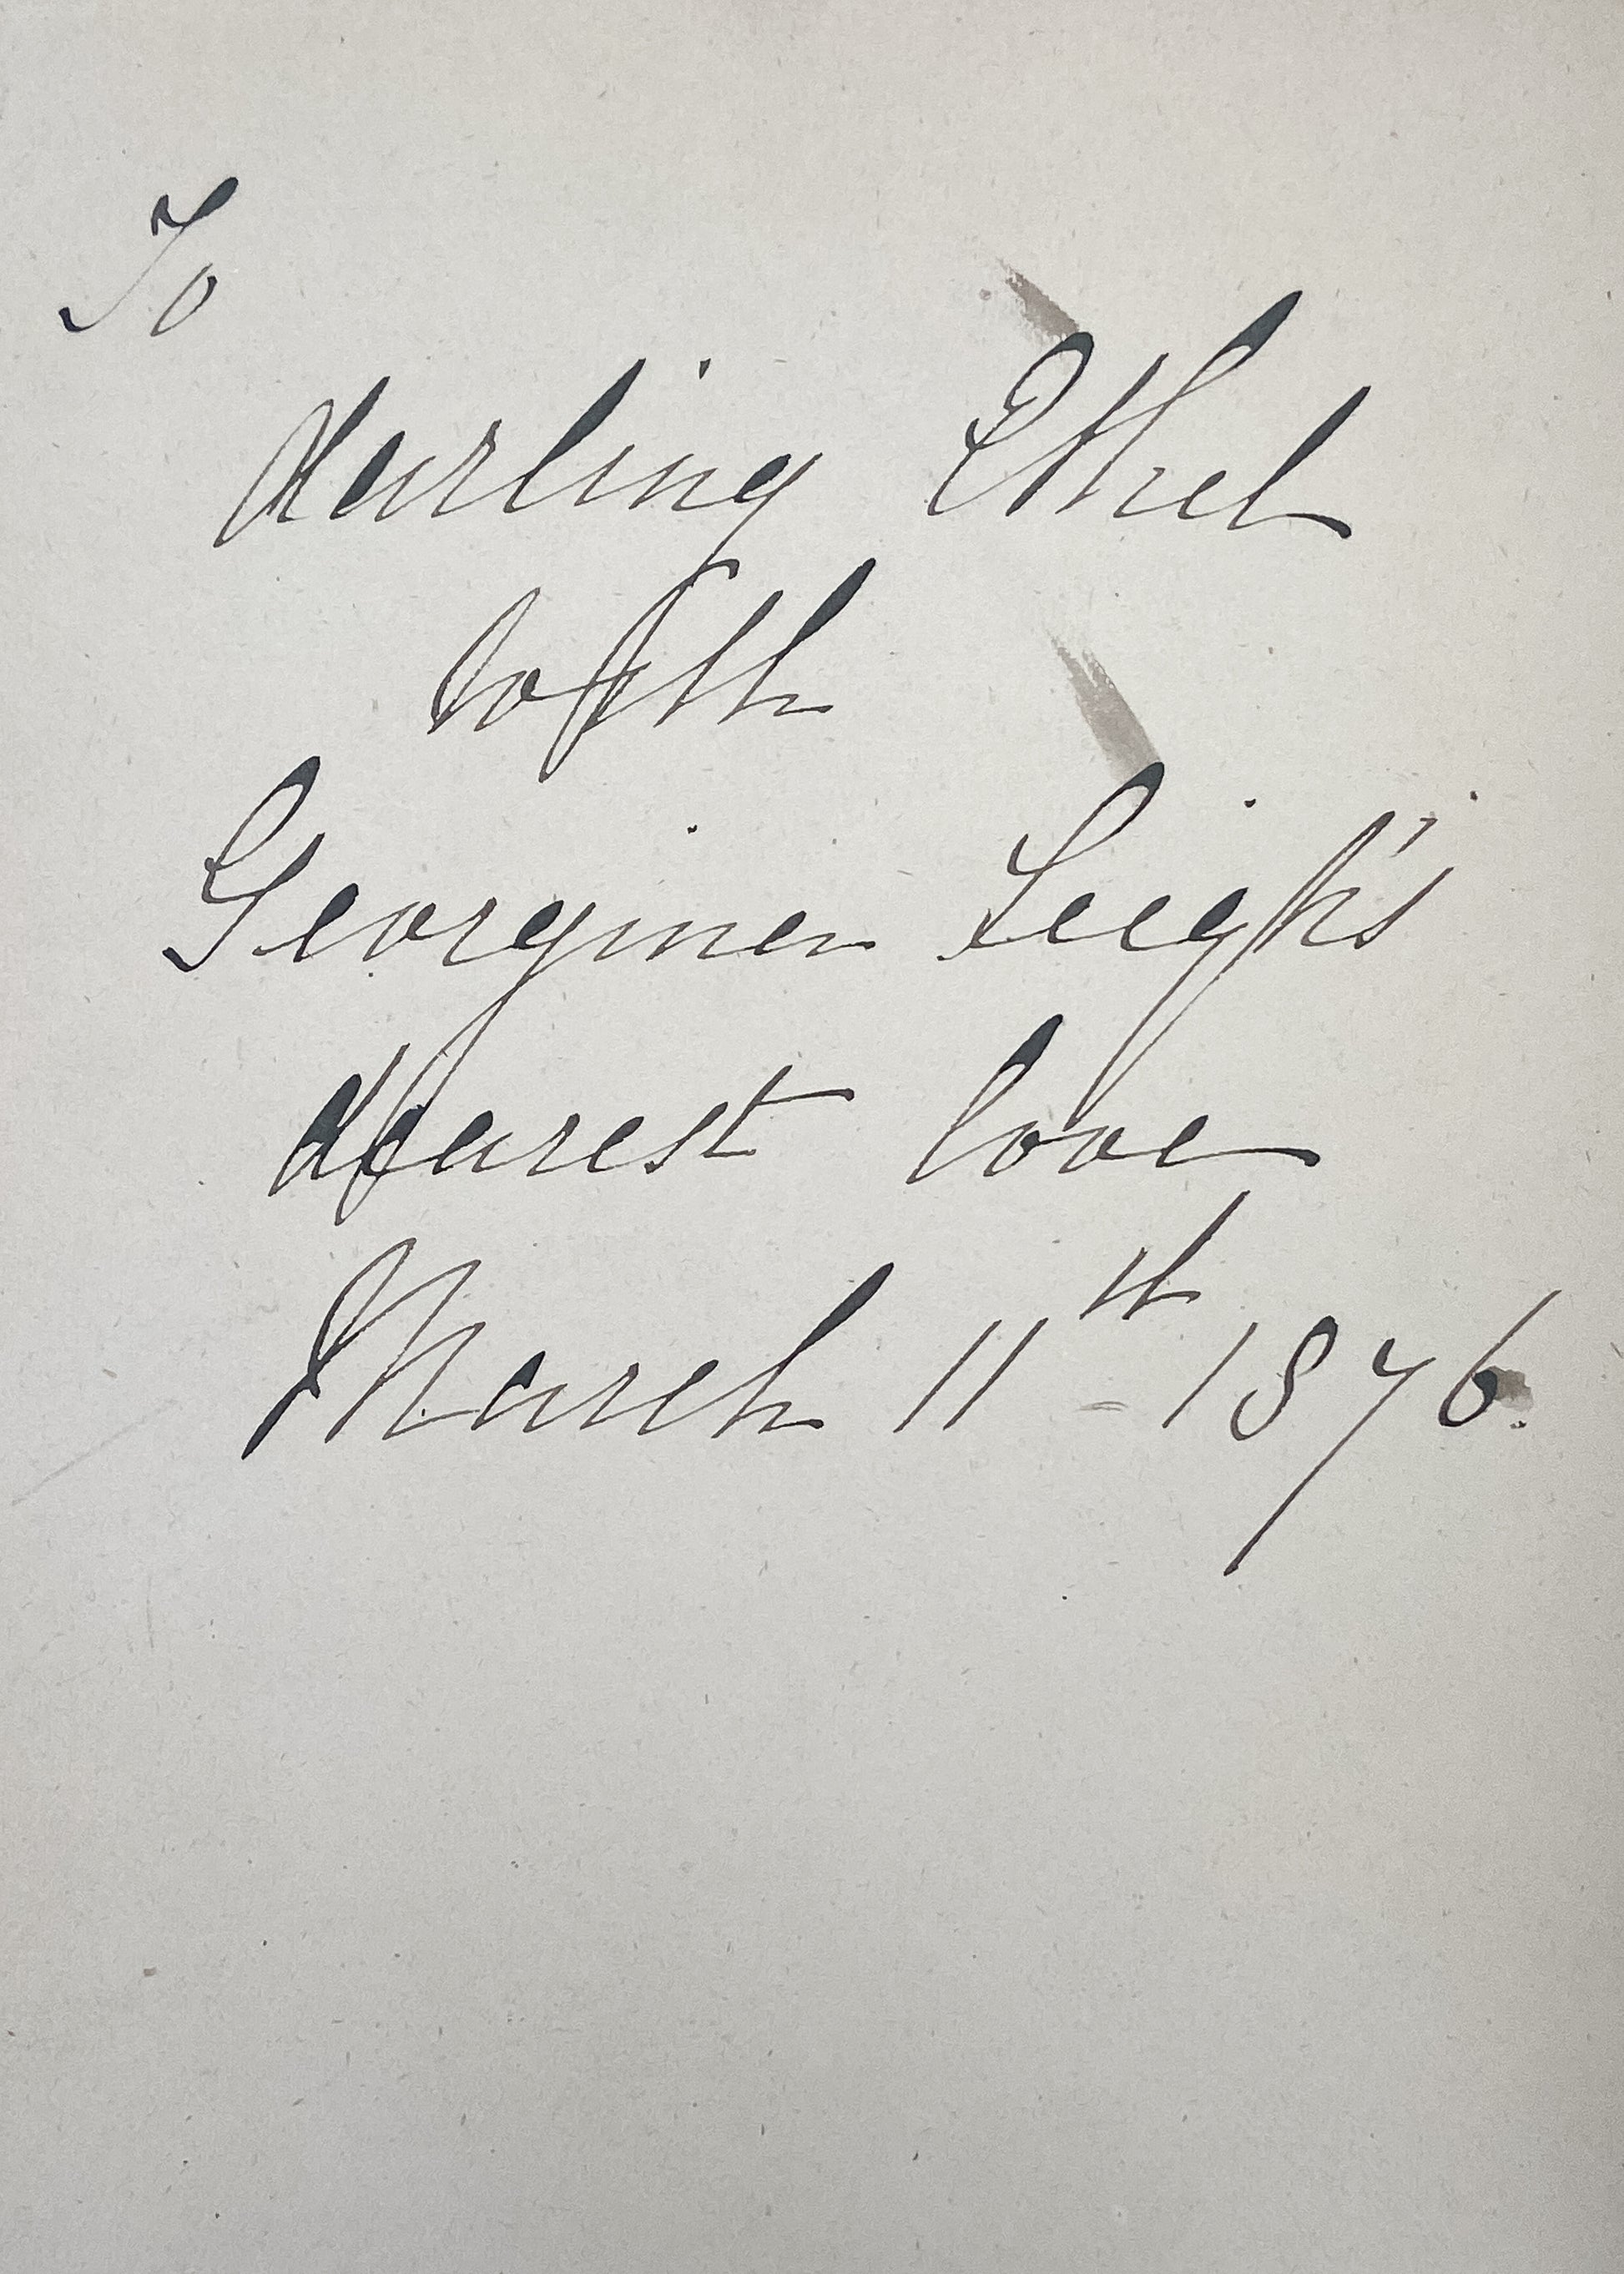 To
darling Ethel
with
Georgina Leigh's
dearest love
March 11th - 1876.